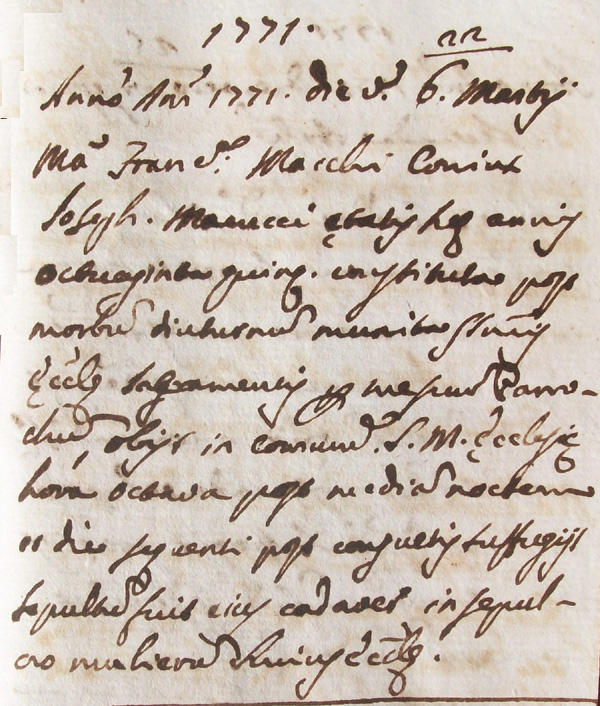 1771.
22
Anno Dni 1771. die v.º 6. Martij
Mª Fran.ca Macchi Coniux
Joseph. Manucci ętatis suę annis
octuaginta quinq. constituta post
morbũ diuturnũ munita Ssmis
Ecclę Sacramentis per meipsũ Parro-
chũ, obijt in comune S. M. Ecclesię
hora octava post mediã noctem
et die sequenti post consuetis suffragijs
sepultũ fuit eius cadaver in sepul-
cro mulierũ huius Ecclę.